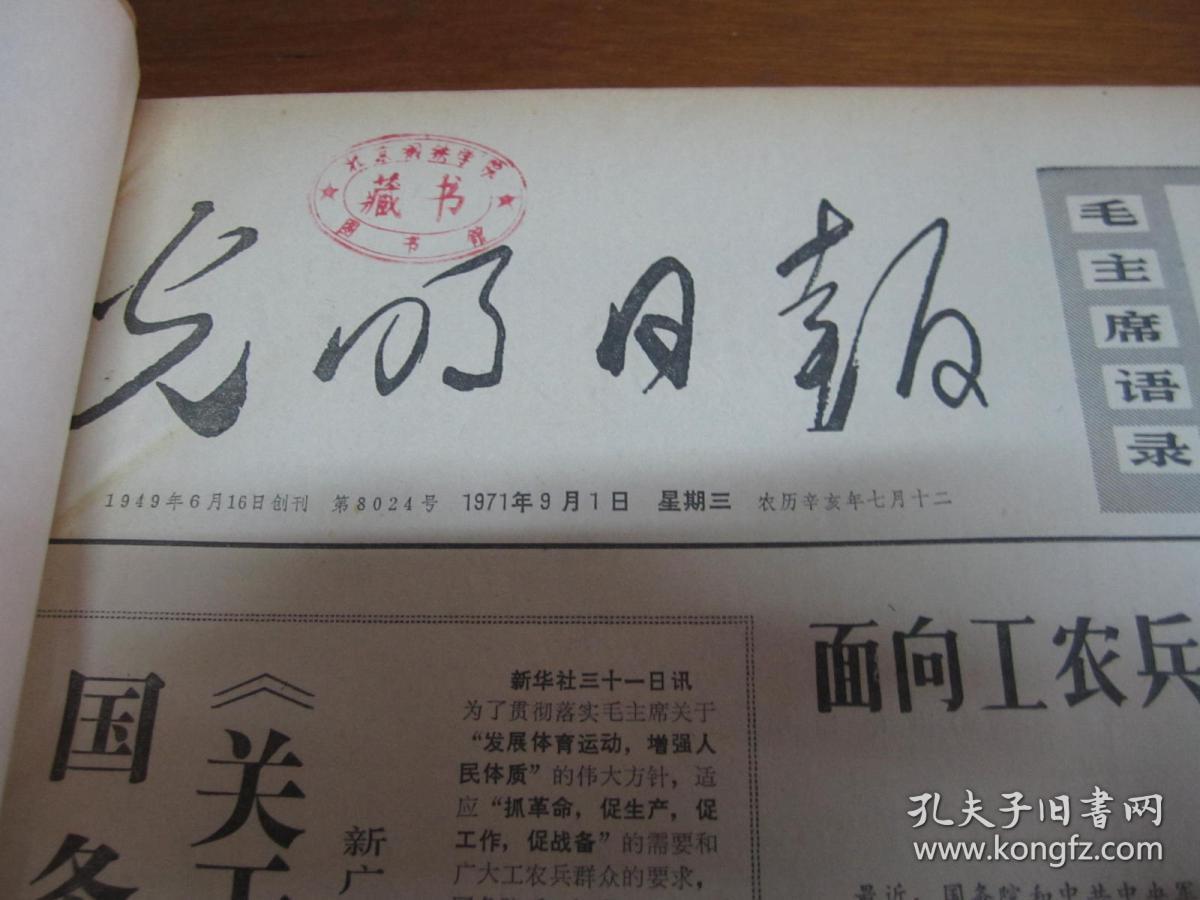 藏书
图书馆
光明日报
毛主席语录
1949年6月16日创刊 第8024号 1971年9月1日 星期三 农历辛亥年七月十二
国务
《关于
新广
新华社三十一日讯
为了贯彻落实毛主席关于
“发展体育运动，增强人
民体质”的伟大方针，适
应“抓革命，促生产，促
工作，促战备”的需要和
广大工农兵群众的要求，
面向工农兵
最近，国务院和中共中央军
孔夫子旧书网
www.kongfz.com